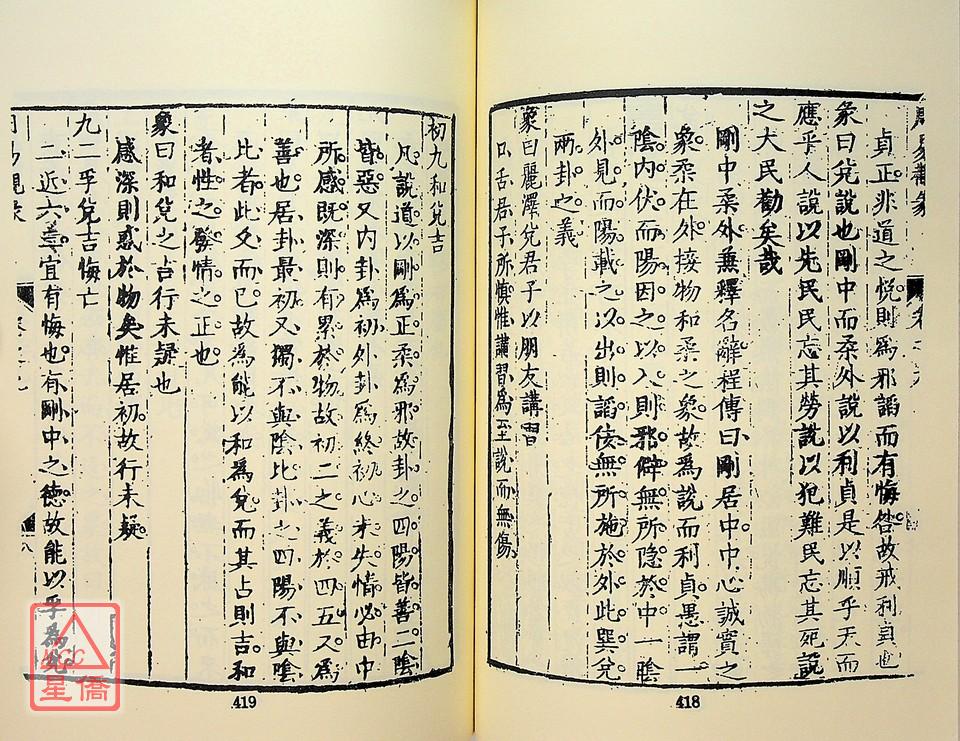 貞正非道之悦則為邪謟而有悔咎故戒利貞也
彖曰兌說也剛中而柔外說以利貞是以順乎天而
應乎人說以先民民忘其勞說以犯難民忘其死說
之大民勸矣哉
剛中柔外兼釋名辭程傳曰剛居中中心誠實之
象柔在外接物和柔之象故為說而利貞愚謂一
陰内伏而陽因之以入則邪僻無所隐於中一陰
外見而陽載之以出則謟佞無所施於外此巽兌
兩卦之義
象曰麗澤兌君子以朋友講習
口舌君子所慎惟講習為至說而無傷
418
初九和兌吉
凡說道以剛為正柔為邪故卦之四陽皆善二陰
皆惡又内卦為初外卦為終初心未失情必由中
所感既深則有累於物故初二之義於四五又為
善也居卦最初又獨不與陰比卦之四陽不與陰
比者此爻而已故為能以和為兌而其占則吉和
者性之發情之正也
象曰和兌之吉行未疑也
感深則惑於物矣惟居初故行未疑
九二孚兌吉悔亡
二近六三宜有悔也有剛中之德故能以孚為兌
八
419
CC
星僑